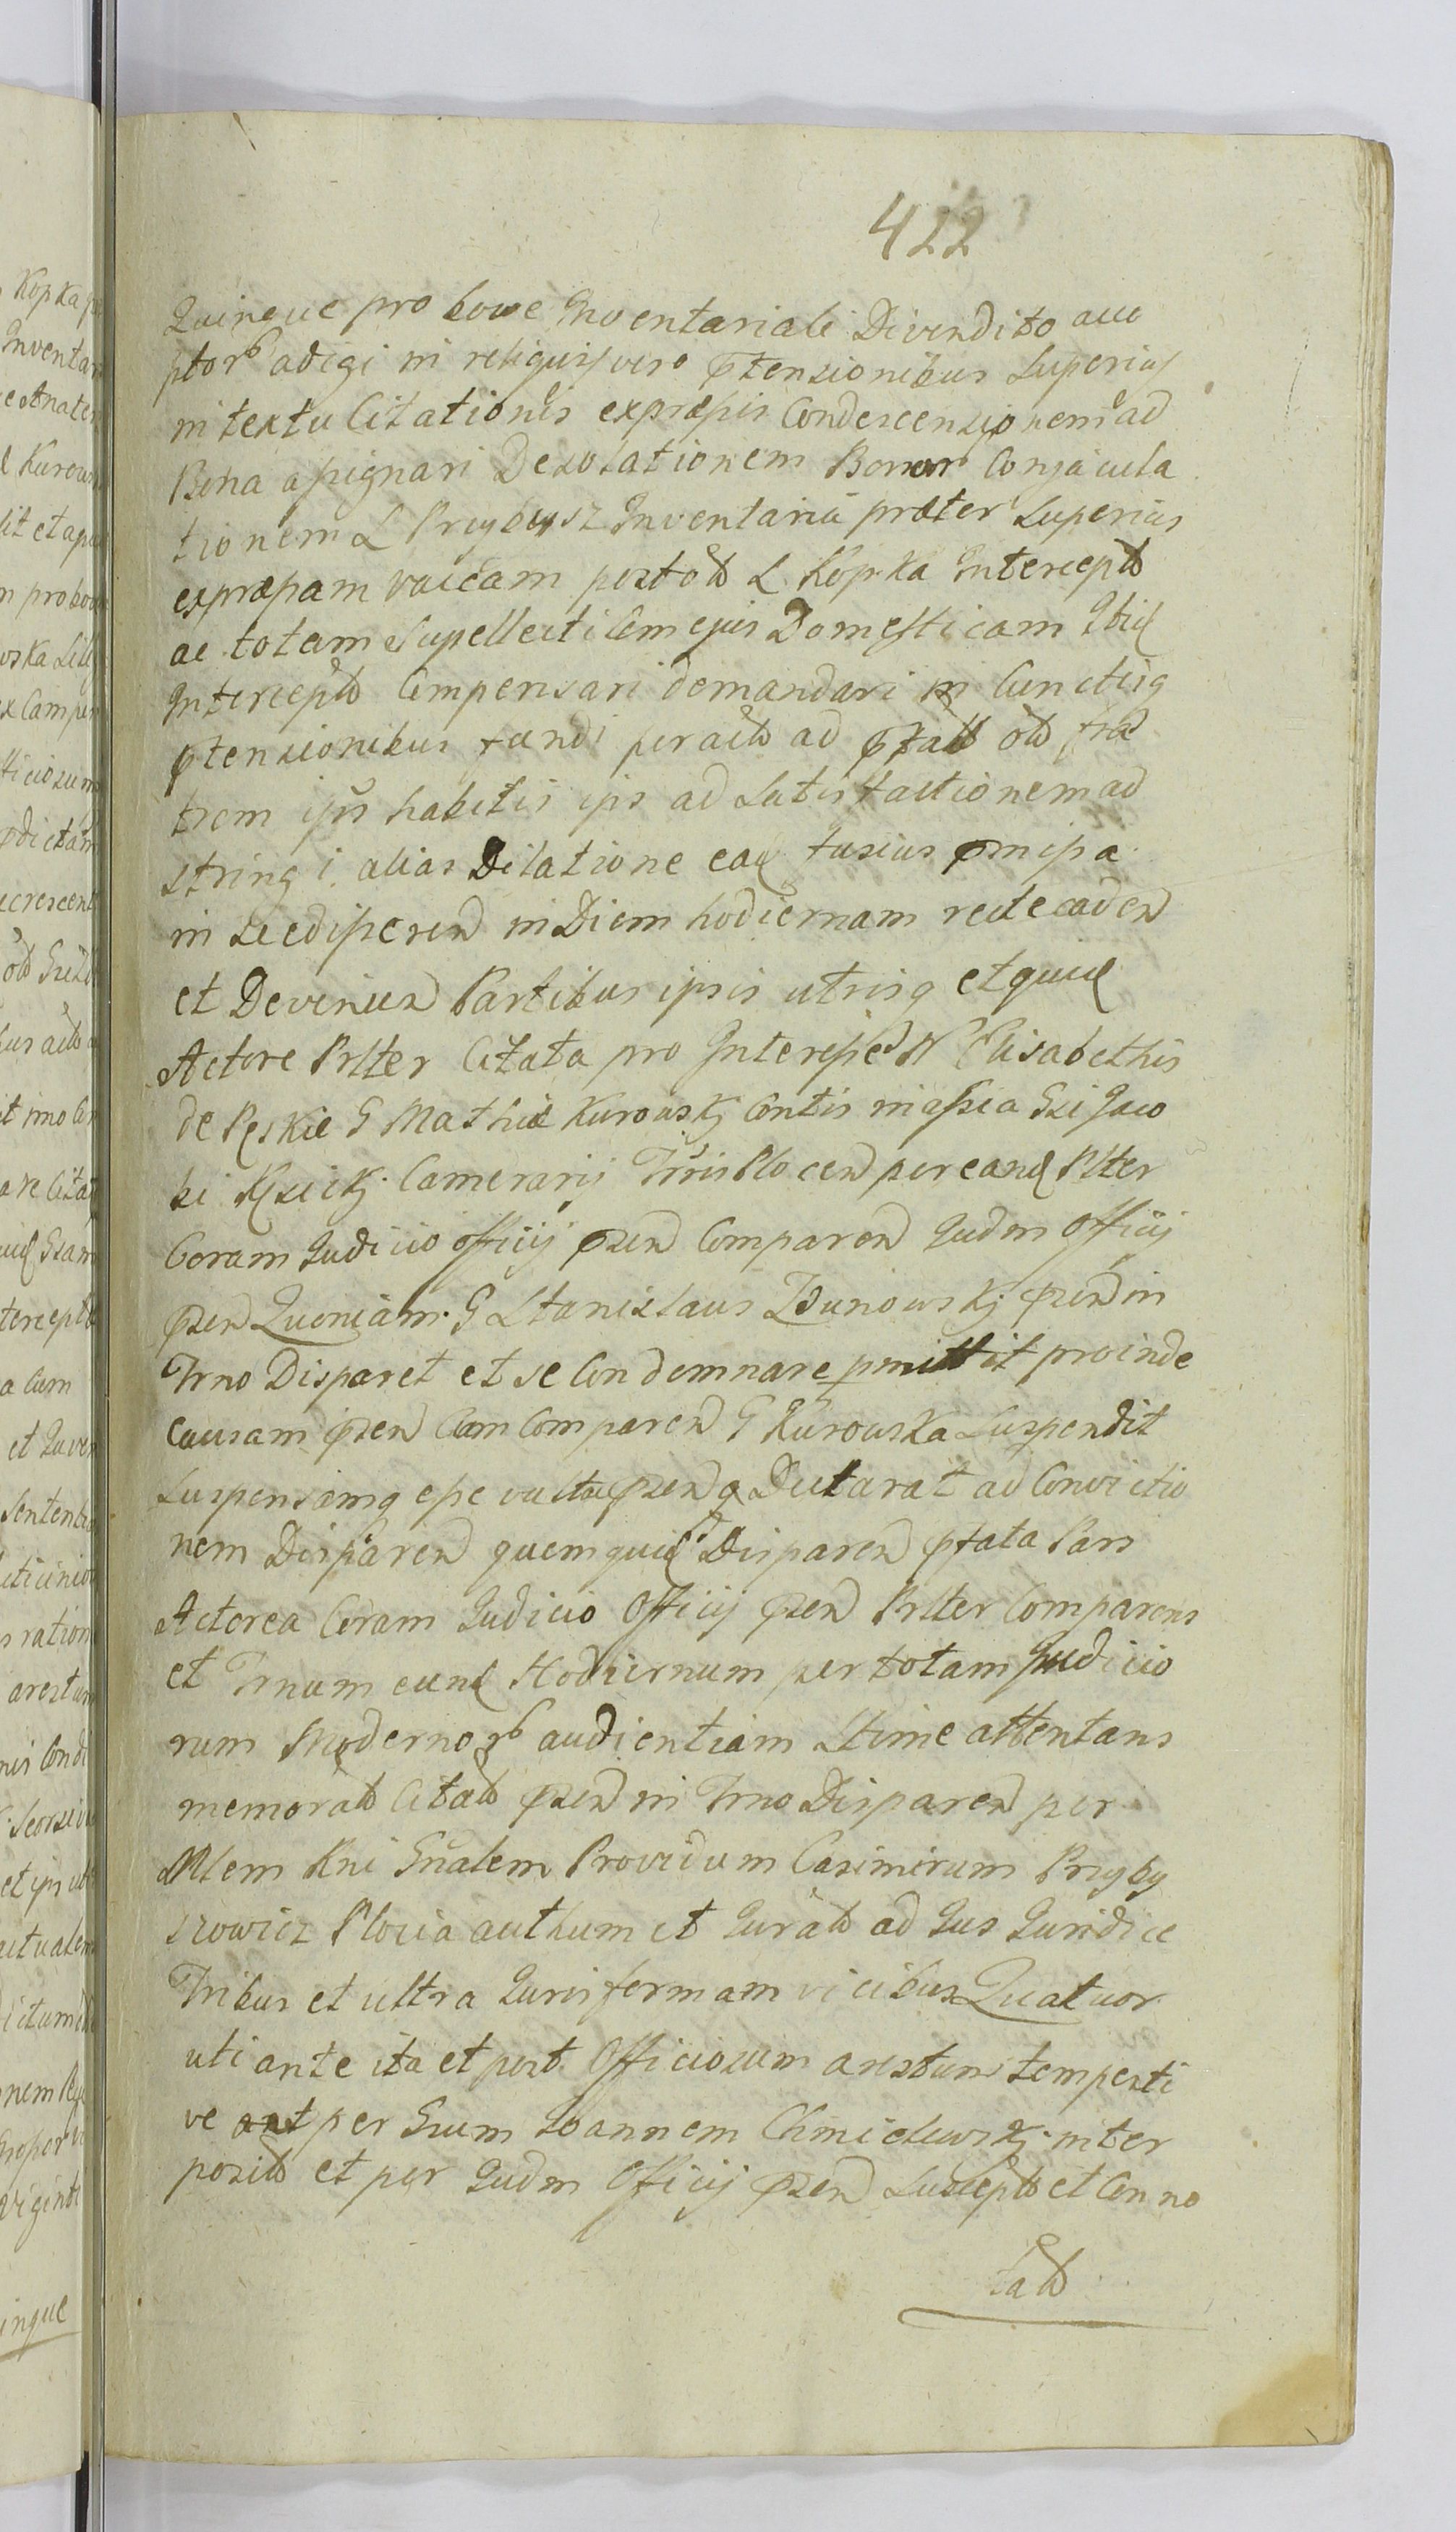 422
Quinque pro bove Inventariali Divendito acce
ptor adigi in reliquis vero ptensionibus Superius
in textu Citationis expressis Condescensionem ad
Bona assignari Desolationem Bonor Consacula
tionem L Przybysz Inventariu præter Superius
expressam vaccam post ob L. Kopka Intercept
ac totam Supellectilem ejus Domesticam Ibid
Intercept Compensari demandari in Cunctisq
ptensionibus fundi peract ad ptatt ob fra
trem ips habitis ips ad Satisfactionem ad
stringi. alias Dilatione ead fusius pmissa
in se edisseren in Diem hodiernam recte caden
et Devenien Partibus ipsis utrisq et quid
Actore Prlter Citata pro Intercess N Elisabethis
de Peskie G Mathiæ Kurowskj Contis in assia Gsi Jaco
bi Ksickj. Camerarij Trris Plocen per eand Plter
Coram Judicio officij psen Comparen Judm Officij
psen Quoniam. G Stanislaus Zdunowskj psen in
Trno Disparet et se Condemnare pmittit proinde
causam psen Cum Comparen G Kurowska Suspendit
Suspensamq esse vult psen q Declarat ad Convictio
nem Disparen quemquid Disparen ptata Pars
Actorea Coram Judicio Officij psen Prlter Comparens
et Trnum eund Hodiernum per totam Judicio
rum Modernor audientiam Stime attentans
memorat Citat psen in Trno Disparen per
Mlem Rni Gnalem Providum Casimirum Przyby
szowicz Plocia authum et Jurat ad Jus Juridice
Tribus et ultra Juris formam vicibus Quatuor
uti ante ita et post Officiosum arestum tempesti
ve per Gsum Joannem Chmielewskj. inter
posit et per Judm Officij psen Suscept et Conno
tat